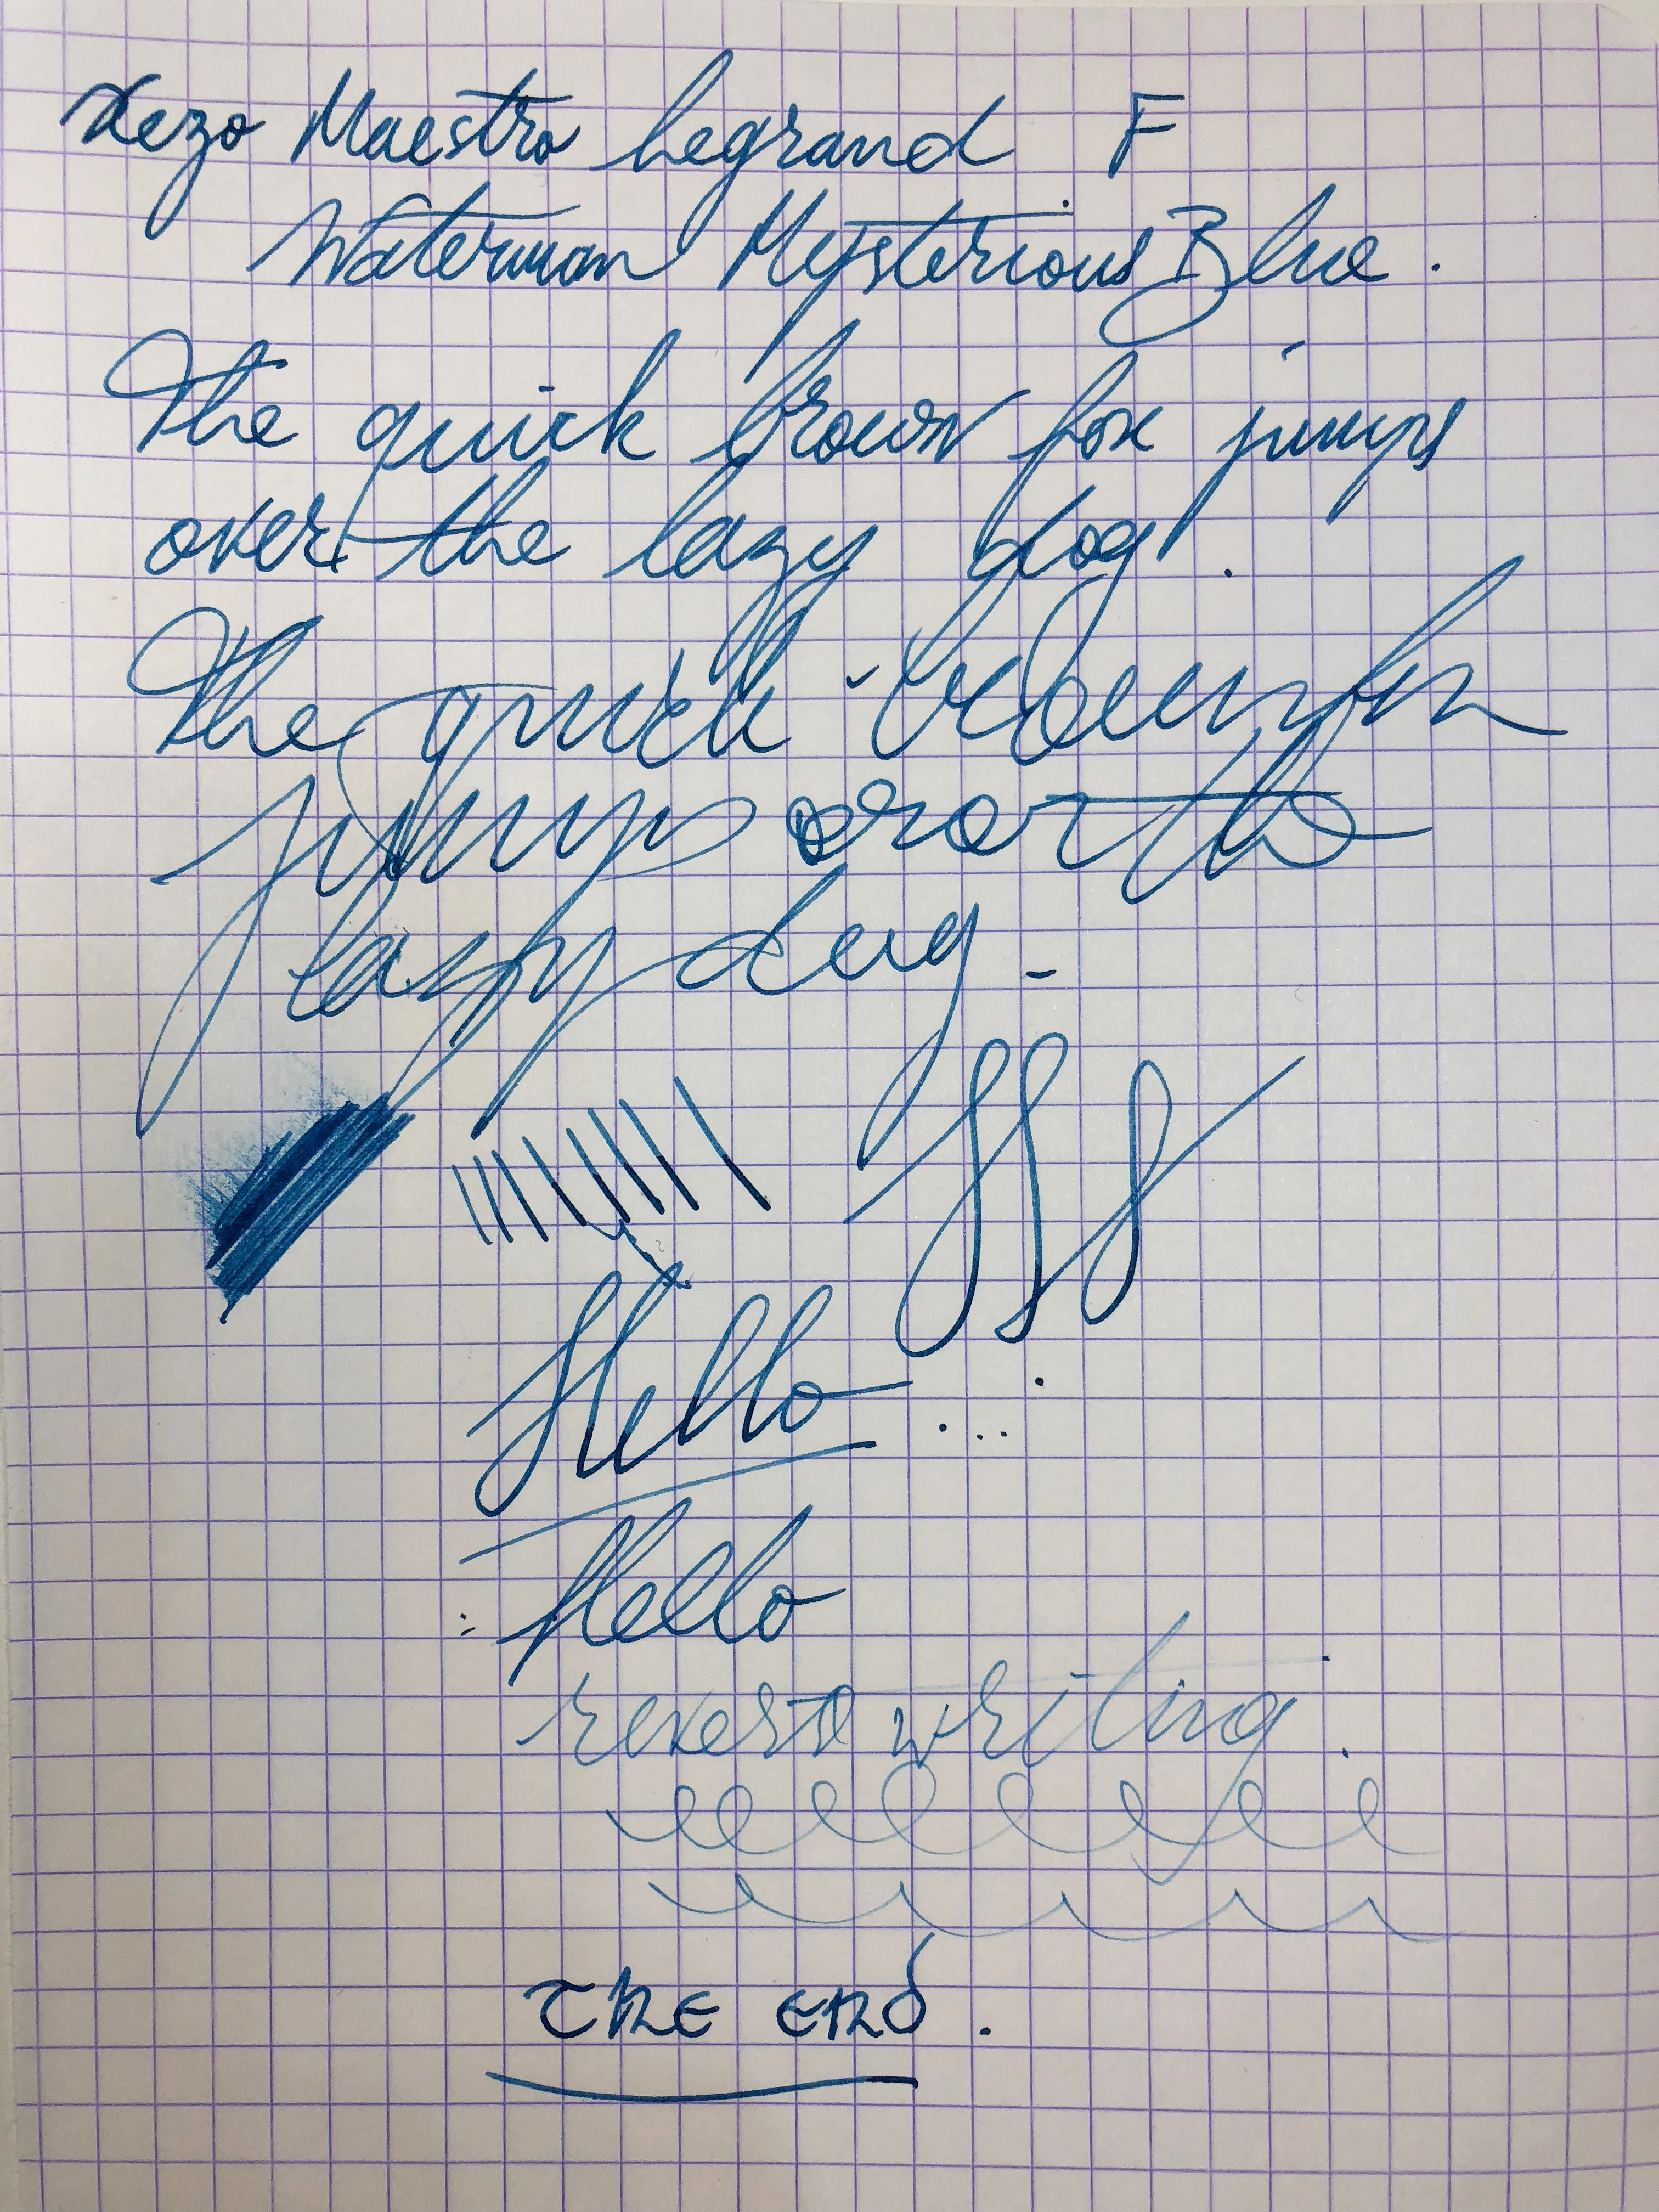 Xezo Maestro Legrand F
Waterman Mysterious Blue.
The quick brown fox jumps
over the lazy dog.
The quick brown fox
jumps over the
lazy dog.
Hello
Hello
reverse writing.
The end.